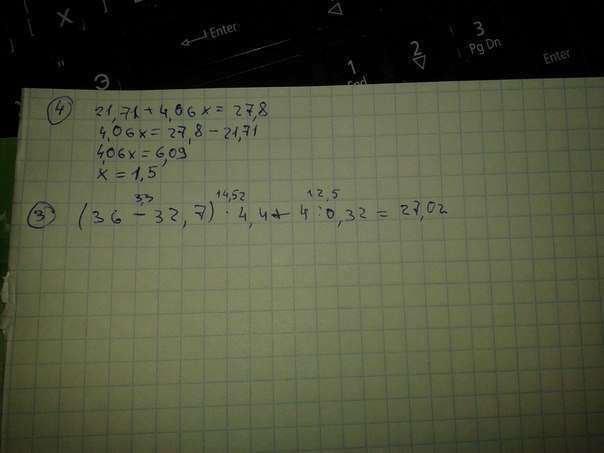 X
Enter
Э
1
End
2
3
Pg Dn
Enter
4
21,71 + 4,06x = 27,8
4,06x = 27,8 - 21,71
4,06x = 6,09
x = 1,5
3,3 14,52 12,5
3 (36 - 32,7) · 4,4 + 4 : 0,32 = 27,02